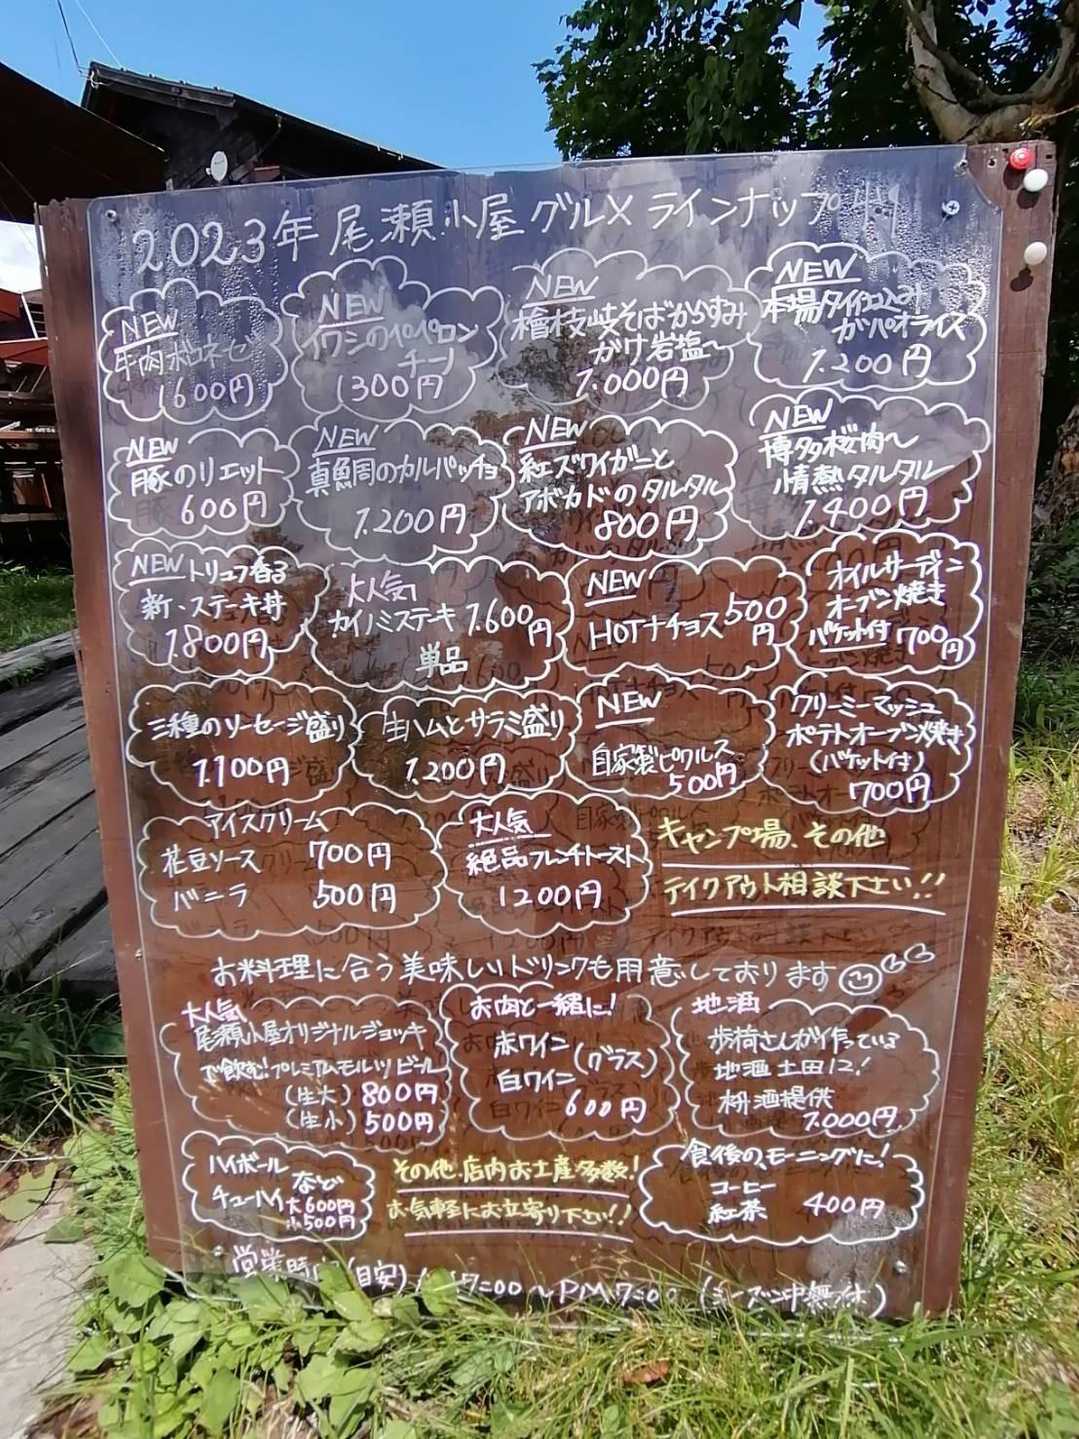 2023年 尾瀬小屋 グルメ ラインナップ!!
NEW
牛肉ボロネーゼ
1600円
NEW
イワシのペペロン
チーノ
1300円
NEW
檜枝岐そばからすみ
がけ岩塩〜
1.000円
NEW
本場タイ
ガパオライス
1.200円
NEW
豚のリエット
600円
NEW
真鯛のカルパッチョ
1.200円
NEW
紅ズワイガニと
アボカドのタルタル
800円
NEW
博多桜肉〜
情熱タルタル
1.400円
NEW トリュフ香る
新・ステーキ丼
1.800円
大人気
カイノミステーキ 1.600円
単品
NEW
HOTナチョス 500円
オイルサーディン
オーブン焼き
バケット付 700円
三種のソーセージ盛り
1.100円
生ハムとサラミ盛り
1.200円
NEW
自家製ピクルス
500円
クリーミーマッシュ
ポテトオーブン焼き
(バケット付)
700円
アイスクリーム
花豆ソース 700円
バニラ 500円
大人気
絶品フレンチトースト
1200円
キャンプ場、その他
テイクアウト相談下さい!!
お料理に合う美味しいドリンクも用意しております
大人気
尾瀬小屋オリジナルジョッキ
で飲む!プレミアムモルツビール
(生大) 800円
(生小) 500円
お肉と一緒に!
赤ワイン
白ワイン (グラス)
600円
地酒
歩荷さんが作っている
地酒 土田12!
枡酒提供
1.000円
ハイボール
チューハイ など
大600円
小500円
その他、店内お土産多数!
お気軽にお立寄り下さい!!
食後の、モーニングに!
コーヒー
紅茶 400円
営業時間(目安) 7:00〜PM7:00 (シーズン中無休)